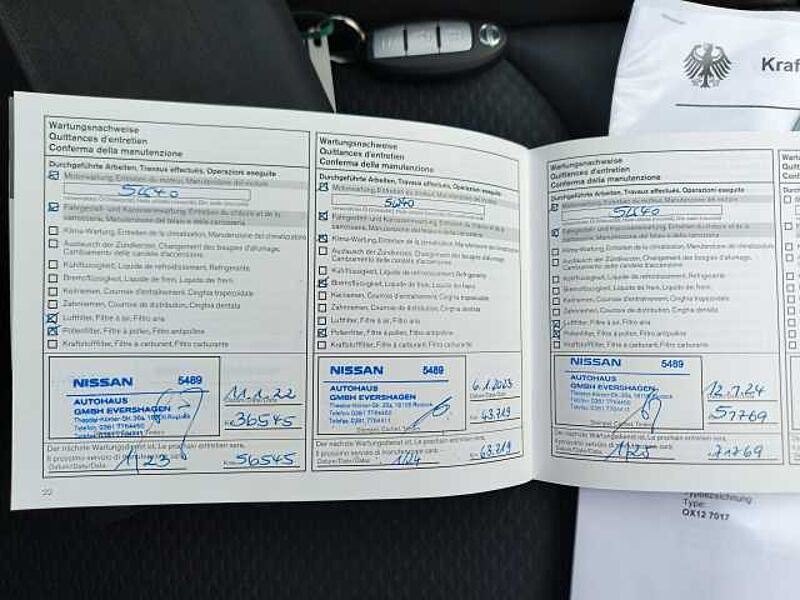 Kraf
Wartungsnachweise
Quittances d'entretien
Conferma della manutenzione
Durchgeführte Arbeiten, Travaux effectués, Operazioni eseguite
Motorwartung, Entretien du moteur, Manutenzione del motore
5W40
Fahrgestell- und Karosseriewartung, Entretien du châssis et de la
carrosserie, Manutenzione del telaio e della carrozzeria
Klima-Wartung, Entretien de la climatisation, Manutenzione del climatizzatore
Austausch der Zündkerzen, Changement des bougies d'allumage,
Cambiamento delle candele d'accensione
Kühlflüssigkeit, Liquide de refroidissement, Refrigerante
Bremsflüssigkeit, Liquide de frein, Liquido dei freni
Keilriemen, Courroie d'entraînement, Cinghia trapezoidale
Zahnriemen, Courroie de distribution, Cinghia dentata
Luftfilter, Filtre à air, Filtro aria
Pollenfilter, Filtre à pollen, Filtro antipolline
Kraftstofffilter, Filtre à carburant, Filtro carburante
NISSAN 5489
AUTOHAUS
GMBH EVERSHAGEN
11.1.22
36545
Der nächste Wartungsdienst ist, Le prochain entretien sera,
Il prossimo servizio di manutenzione sarà:
Datum/Date/Data: 1/23 Km: 56545
22
Wartungsnachweise
Quittances d'entretien
Conferma della manutenzione
Durchgeführte Arbeiten, Travaux effectués, Operazioni eseguite
Motorwartung, Entretien du moteur, Manutenzione del motore
5W40
Fahrgestell- und Karosseriewartung, Entretien du châssis et de la
carrosserie, Manutenzione del telaio e della carrozzeria
Klima-Wartung, Entretien de la climatisation, Manutenzione del climatizzatore
Austausch der Zündkerzen, Changement des bougies d'allumage,
Cambiamento delle candele d'accensione
Kühlflüssigkeit, Liquide de refroidissement, Refrigerante
Bremsflüssigkeit, Liquide de frein, Liquido dei freni
Keilriemen, Courroie d'entraînement, Cinghia trapezoidale
Zahnriemen, Courroie de distribution, Cinghia dentata
Luftfilter, Filtre à air, Filtro aria
Pollenfilter, Filtre à pollen, Filtro antipolline
Kraftstofffilter, Filtre à carburant, Filtro carburante
NISSAN 5489
AUTOHAUS
GMBH EVERSHAGEN
6.1.2023
43.719
Der nächste Wartungsdienst ist, Le prochain entretien sera,
Il prossimo servizio di manutenzione sarà:
Datum/Date/Data: 1/24 Km: 63.719
Wartungsnachweise
Quittances d'entretien
Conferma della manutenzione
Durchgeführte Arbeiten, Travaux effectués, Operazioni eseguite
Motorwartung, Entretien du moteur, Manutenzione del motore
5W40
Fahrgestell- und Karosseriewartung, Entretien du châssis et de la
carrosserie, Manutenzione del telaio e della carrozzeria
Klima-Wartung, Entretien de la climatisation, Manutenzione del
Austausch der Zündkerzen, Changement des bougies d'allumage,
Cambiamento delle candele d'accensione
Kühlflüssigkeit, Liquide de refroidissement, Refrigerante
Bremsflüssigkeit, Liquide de frein, Liquido dei freni
Keilriemen, Courroie d'entraînement, Cinghia trapezoidale
Zahnriemen, Courroie de distribution, Cinghia dentata
Luftfilter, Filtre à air, Filtro aria
Pollenfilter, Filtre à pollen, Filtro antipolline
Kraftstofffilter, Filtre à carburant, Filtro carburante
NISSAN 5489
AUTOHAUS
GMBH EVERSHAGEN
12.1.24
51769
Der nächste Wartungsdienst ist, Le prochain entretien sera,
Il prossimo servizio di manutenzione sarà:
Datum/Date/Data: 1/25 71769
Type:
QX12 7017